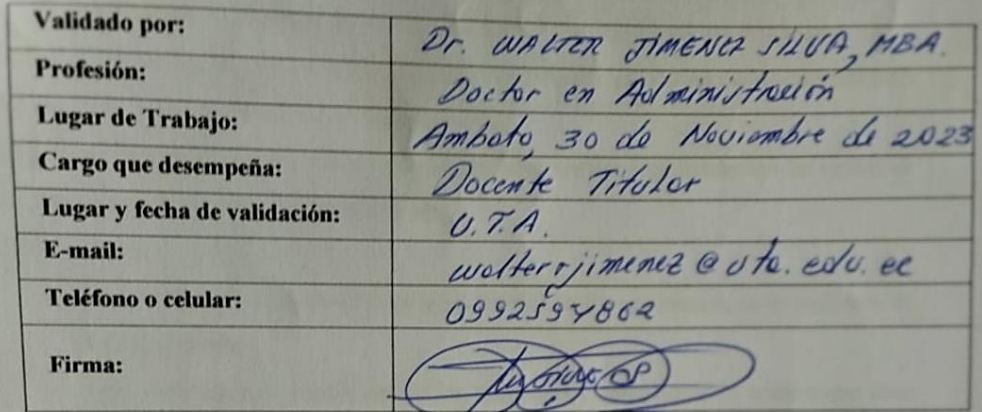 Validado por: Dr. WALTER JIMENEZ SILVA, MBA.
Profesión: Doctor en Administración
Lugar de Trabajo: Ambato, 30 de Noviembre de 2023
Cargo que desempeña: Docente Titular
Lugar y fecha de validación: U.T.A.
E-mail: walterrjimenez@uta.edu.ec
Teléfono o celular:
Firma: